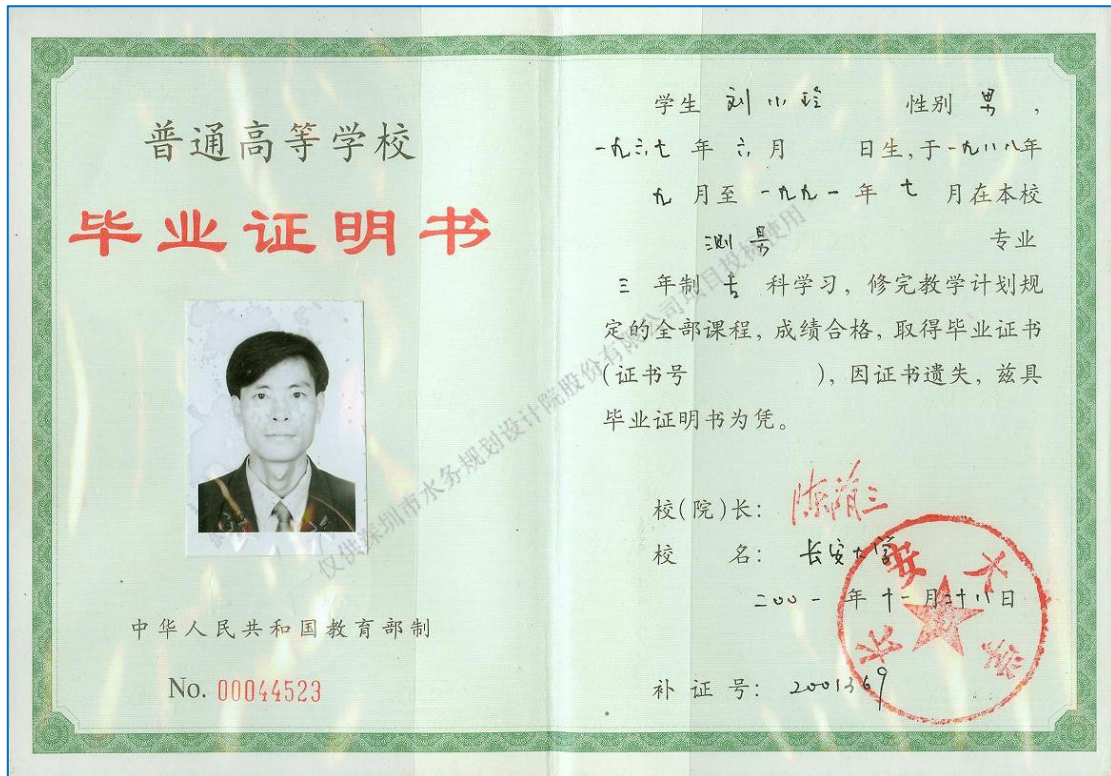 普通高等学校
毕业证明书
中华人民共和国教育部制
No. 00044523
学生 刘小玲 性别 男,
一九六七 年 六 月 日生,于一九八八年
九 月至 一九九一 年 七 月在本校
测量 专业
三 年制 专 科学习, 修完教学计划规
定的全部课程, 成绩合格, 取得毕业证书
(证书号 ), 因证书遗失, 兹具
毕业证明书为凭。
校(院)长: 陈荫三
校 名: 长安大学
二〇〇一 年 十一 月二十八日
补 证 号: 2001369
长安大学
仅供深圳市水务规划设计院股份有限公司项目投标使用